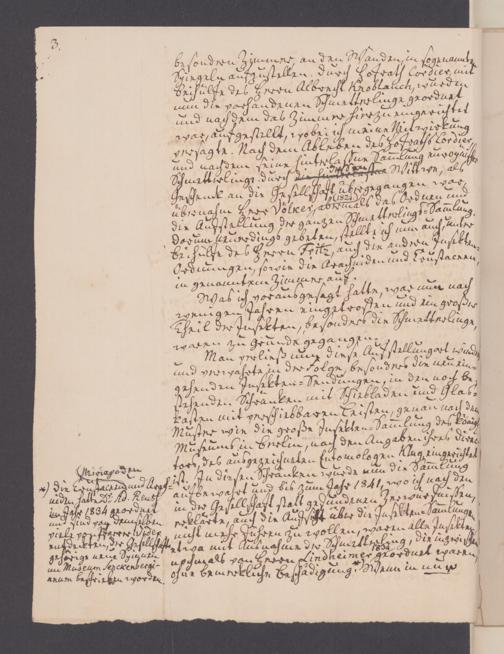 3.
besondren Zimmer, an den Wänden, in sogenannten
Spiegeln aufzustellen. Durch Hofrath Cordier, mit
Beihülfe des Herrn Albrecht Knoblauch, wurden
nun die vorhandenen Schmetterlinge geordnet
und nachdem das Zimmer hierzu eingerichtet
war, aufgestellt, wobei ich meine Mitwirkung
versagte. Nach dem Ableben des Hofraths Cordier,
und nachdem seine hinterlassene Sammlung europäischer
Schmetterlinge durch dessen Wittwe, als
Geschenk an die Gesellschaft übergegangen war,
übernahm Herr Völcker, abermals das Ordnen und
die Aufstellung der ganzen Schmetterlings-Sammlung.
Darum neuerdings gebeten, stellte ich nun auch, unter
Beihülfe des Herrn Fritz, auch die andren Insekten-
Ordnungen, sowie die Arachniden und Crustaceen,
in genanntem Zimmer auf.
Was ich vorausgesagt hatte, war nun nach
wenigen Jahren eingetroffen und ein großer
Theil der Insekten, besonders die Schmetterlinge,
waren zu Grunde gegangen.
Man verließ nun diese Aufstellungsart wieder
und verwahrte in der Folge, besonders die neu ein-
gehenden Insekten-Sendungen, in den noch be-
stehenden Schränken mit Schiebladen und Glas-
kasten mit verschiebbaren Leisten, genau nach dem
Muster wie die große Insekten-Sammlung des Königl.
Museums in Berlin, nach den Angaben ihres Direc-
tors, des ausgezeichneten Entomologen Klug, eingerichtet
ist. In diesen Schränken wurde nun die Sammlung
aufbewahrt und bis zum Jahr 1841, wo ich nach den
in der Gesellschaft stattgefundenen Zerwürfnissen,
erklärte, auf die Aufsicht über die Insekten-Sammlung
nicht mehr führen zu wollen, waren alle Insekten
etwa mit Ausnahme der Schmetterlinge, die inzwischen
nochmals von Herrn Lindheimer geordnet waren
ohne bemerkliche Beschädigung. Wenn ich nun
Miriapoden
*) Die Crustaceen und Arach-
niden hatte Dr. Ad. Reuss
im Jahr 1834 geordnet
und sind von demselben
viele
entdeckten der Gesellschaft
gehörige neue Species
im Museum Senckenbergi-
anum beschrieben worden.